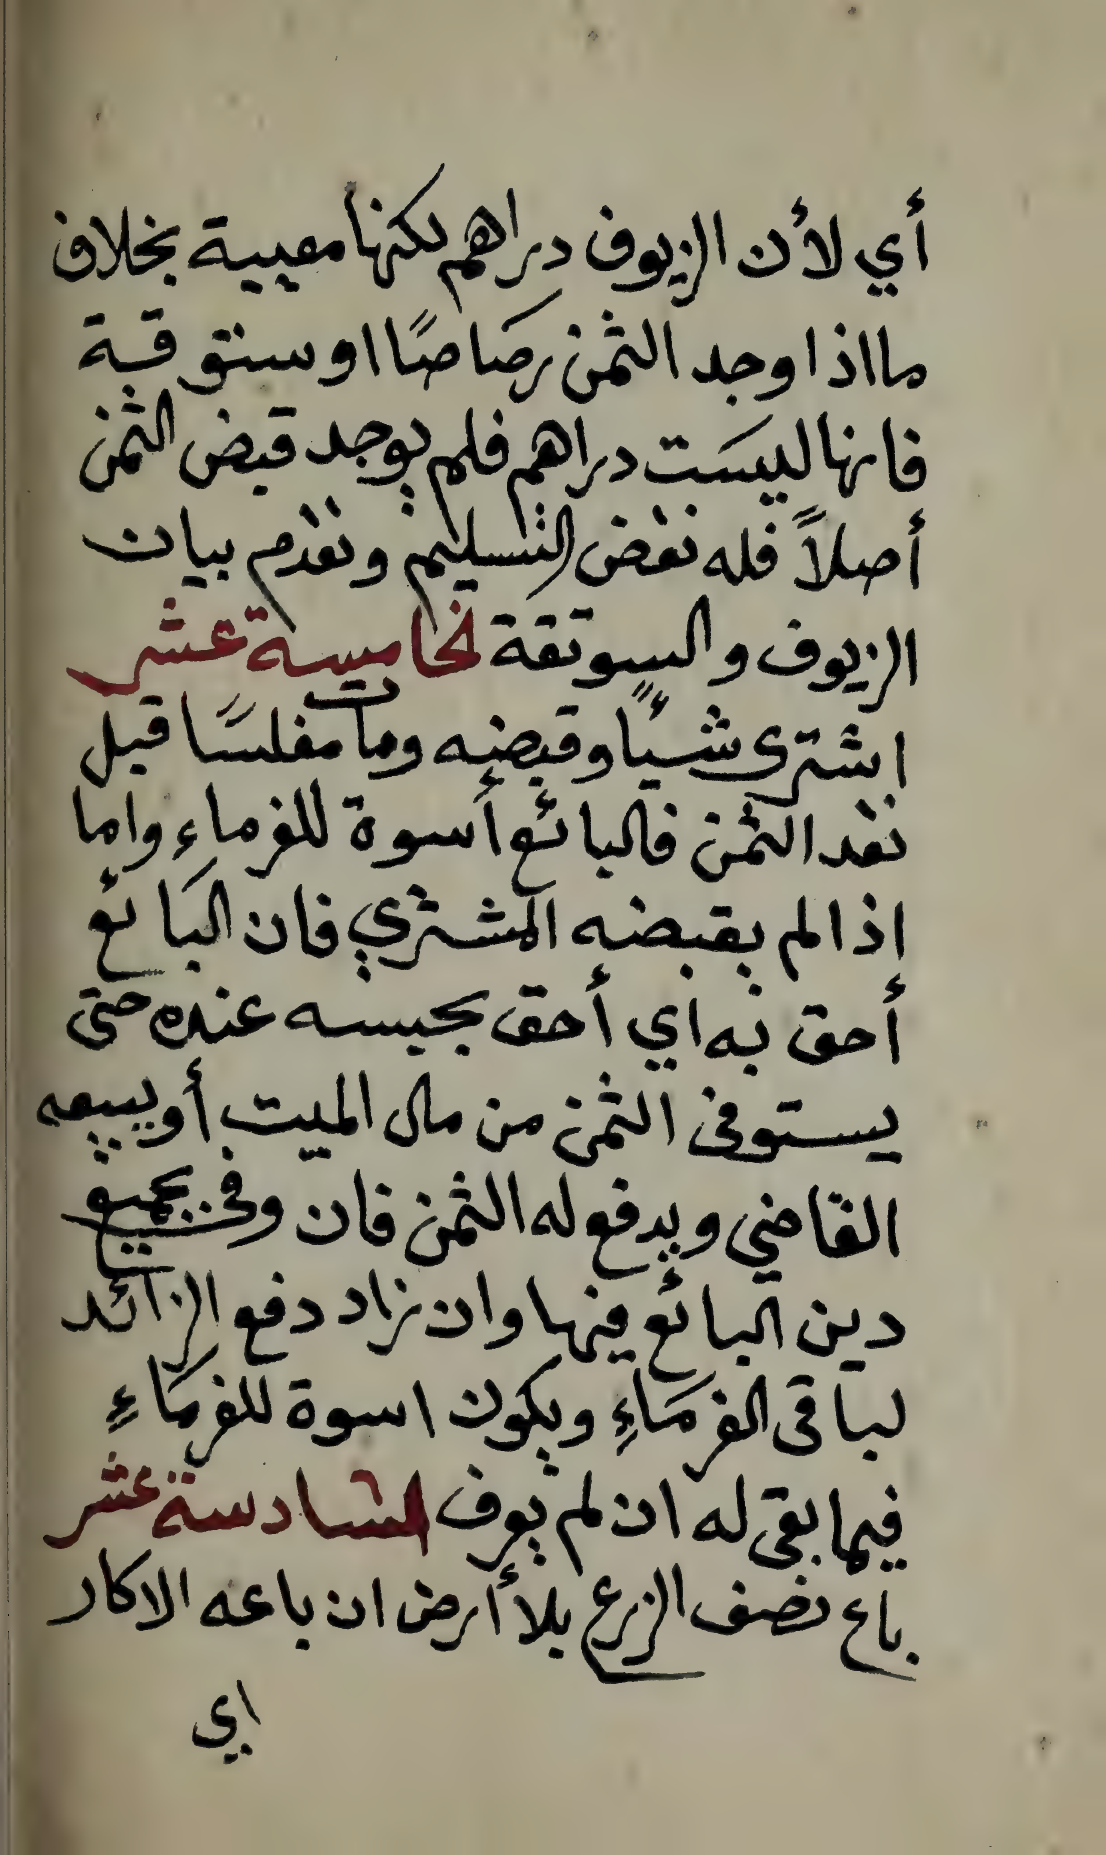 أي لأن الزيوف دراهم لكنها معيبة بخلاف
ما اذا وجد الثمن رصاصًا او ستوقة
فانها ليست دراهم فلم يوجد قبض الثمن
أصلاً فله نقض التسليم وتقدم بيان
الزيوف والستوقة الخامسة عشر
اشترى شيئًا وقبضه ومات مفلسًا قبل
نقد الثمن فالبائع أسوة للغرماء واما
اذا لم يقبضه المشتري فان البائع
أحق به اي أحق بحبسه عنده حتى
يستوفى الثمن من مال الميت أو يبيعه
القاضي ويدفع له الثمن فان وفى بجميع
دين البائع فبها وان زاد دفع الزائد
لباقى الغرماءِ ويكون اسوة للغرماءِ
فيما بقى له ان لم يوف السادسة عشر
باع نصف الزرع بلا أرض ان باعه الاكار
اي